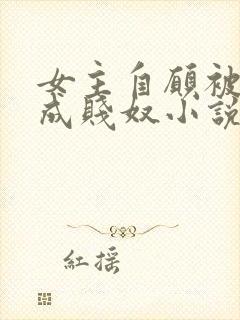 女主自願被
成賤奴小説
紅摇